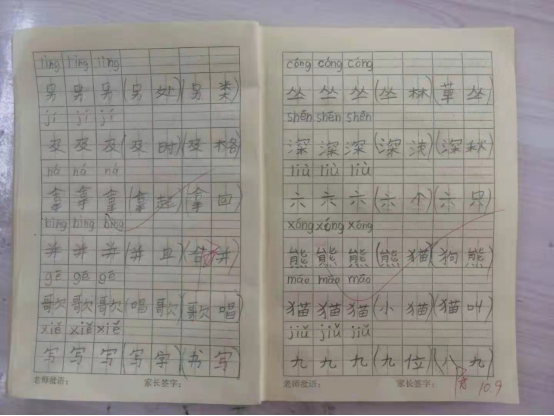 lìng lìng lìng
另 另 另 (另 处)(另 类)
jí jí jí
及 及 及 (及 时)(及 格)
ná ná ná
拿 拿 拿 (拿 起)(拿 出)
bìng bìng bìng
并 并 并 (并 且)
gē gē gē
歌 歌 歌 (唱 歌)(歌 唱)
xiě xiě xiě
写 写 写 (写 字)(书 写)
老师批语： 家长签字：
cóng cóng cóng
丛 丛 丛 (丛 林)(草 丛)
shēn shēn shēn
深 深 深 (深 浅)(深 秋)
liù liù liù
六 六 六 (六 个)(六 只)
xóng xóng xóng
熊 熊 熊 (熊 猫)(狗 熊)
māo māo māo
猫 猫 猫 (小 猫)(猫 叫)
jiǔ jiǔ jiǔ
九 九 九 (九 位)(八 九)
老师批语： 家长签字：
10.9